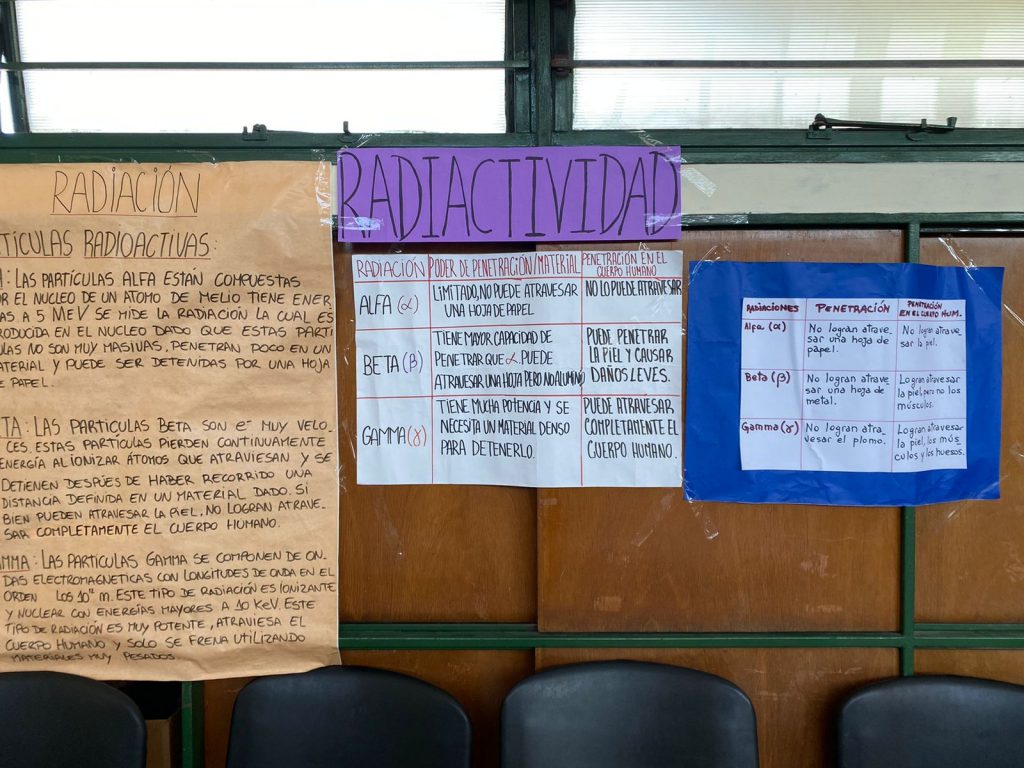 RADIACIÓN
TÍCULAS RADIOACTIVAS:
: LAS PARTÍCULAS ALFA ESTÁN COMPUESTAS
OR EL NUCLEO DE UN ATOMO DE MELIO TIENE ENER
AS A 5 MEV SE MIDE LA RADIACIÓN LA CUAL ES
RODUCIDA EN EL NUCLEO DADO QUE ESTAS PARTI
ULAS NO SON MUY MASIVAS, PENETRAN POCO EN UN
ATERIAL Y PUEDE SER DETENIDAS POR UNA HOJA
E PAPEL.
TA : LAS PARTÍCULAS BETA SON e⁻ MUY VELO
CES. ESTAS PARTÍCULAS PIERDEN CONTINUAMENTE
ENERGÍA AL IONIZAR ÁTOMOS QUE ATRAVIESAN Y SE
DETIENEN DESPÚES DE HABER RECORRIDO UNA
DISTANCIA DEFINIDA EN UN MATERIAL DADO. SI
BIEN PUEDEN ATRAVESAR LA PIEL, NO LOGRAN ATRAVE-
SAR COMPLETAMENTE EL CUERPO HUMANO.
MMA : LAS PARTICULAS GAMMA SE COMPONEN DE ON-
DAS ELECTROMAGNETICAS CON LONGITUDES DE ONDA EN EL
ORDEN LOS m. ESTE TIPO DE RADIACIÓN ES IONIZANTE
Y NUCLEAR CON ENERGÍAS MAYORES A 10 KeV. ESTE
TIPO DE RADIACIÓN ES MUY POTENTE, ATRAVIESA EL
CUERPO HUMANO Y SOLO SE FRENA UTILIZANDO
MATERIALES MUY PESADOS
RADIACTIVIDAD
RADIACIÓN PODER DE PENETRACIÓN/MATERIAL PENETRACIÓN EN EL
CUERPO HUMANO
ALFA (α) LIMITADO, NO PUEDE ATRAVESAR NO LO PUEDE ATRAVESAR
UNA HOJA DE PAPEL
BETA (β) TIENE MAYOR CAPACIDAD DE PUEDE PENETRAR
PENETRAR QUE α. PUEDE LA PIEL Y CAUSAR
ATRAVESAR UNA HOJA PERO NO ALUMINIO DAÑOS LEVES.
GAMMA (γ) TIENE MUCHA POTENCIA Y SE PUEDE ATRAVESAR
NECESITA UN MATERIAL DENSO COMPLETAMENTE EL
PARA DETENERLO. CUERPO HUMANO.
RADIACIONES PENETRACIÓN PENETRACIÓN
EN EL CUERPO HUM.
Alfa (α) No logran atrave- No logran atrave
sar una hoja de sar la piel.
papel.
Beta (β) No logran atrave Logran atravesar
sar una hoja de la piel, pero no los
metal. músculos.
Gamma (γ) No logran atra- Logran atravesar
vesar el plomo. la piel, los mús-
culos y los huesos.